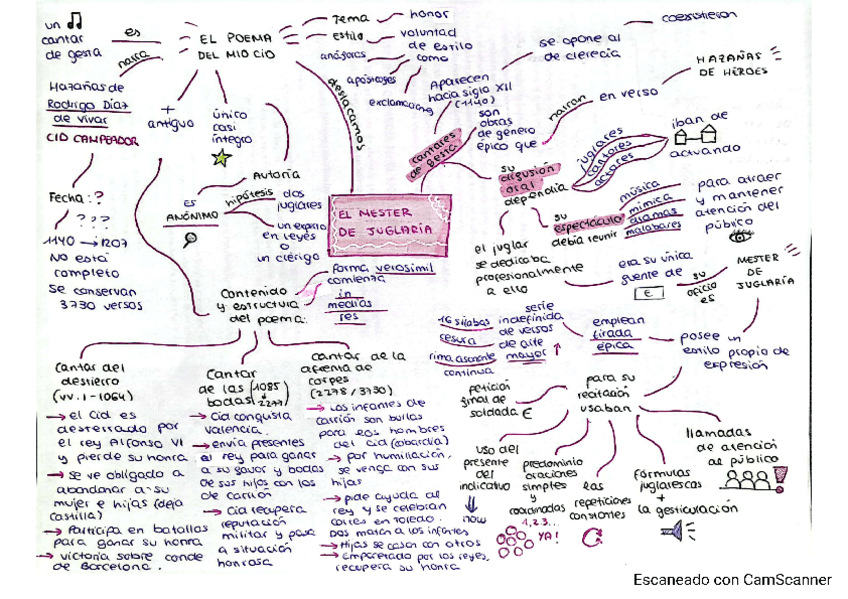 un
cantar
de gesta
es
narra
EL POEMA
DEL MIO CID
Tema
honor
estilo
voluntad
de estilo
como
anáforas
apóstrofes
exclamaciones
destacamos
Hazañas de
Rodrigo Díaz
de vivar
CID CAMPEADOR
+
antiguo
único
casi
íntegro
Fecha: ?
? ? ?
1140 → 1207
NO está
completo
se conservan
3730 versos
Autoría
es
ANÓNIMO
hipótesis
dos
juglares
un experto
en leyes
o
un clérigo
EL MESTER
DE JUGLARÍA
cantares
de gesta
Aparecen
hacia siglo XII
(1140)
se opone al
de clerecía
coexistieron
son
obras
de género
épico que
narran
en verso
HAZAÑAS
DE HÉROES
su
difusión
oral
dependía
juglares
cantores
actores
iban de
actuando
su
espectáculo
debía reunir
música
mímica
dramas
malabares
para atraer
y mantener
atención del
público
el juglar
se dedicaba
profesionalmente
a ello
era su única
fuente de
€
su
oficio
es
MESTER
DE
JUGLARÍA
posee un
estilo propio de
expresión
emplean
tirada
épica
serie
indefinida
de versos
de arte
mayor
16 sílabas
cesura
rima asonante
continua
para su
recitación
usaban
petición
final de
soldada €
uso del
presente
del
indicativo
now
predominio
oraciones
simples
y
coordinadas
1, 2, 3...
YA!
las
repeticiones
constantes
Fórmulas
juglarescas
+
la gesticulación
llamadas
de atención
al público
Contenido
y estructura
del poema:
forma verosímil
comienza
in
medias
res
Cantar del
destierro
(vv. 1-1064)
→ el Cid es
desterrado por
el rey Alfonso VI
y pierde su honra
→ se ve obligado a
abandonar a su
mujer e hijas (deja
Castilla)
→ Participa en batallas
para ganar su honra
→ victoria sobre conde
de Barcelona.
Cantar
de las
bodas
(1085
2277)
→ Cid conquista
Valencia.
→ envía presentes
al rey para ganar
a su favor y bodas
de sus hijas con los
de Carrión
→ Cid recupera
reputación
militar y pasa
a situación
honrosa
Cantar de la
afrenta de
corpes
(2278 / 3730)
→ Los infantes de
carrión son burlas
para los hombres
del cid (cobardía)
→ por humillación,
se venga con sus
hijas
→ pide ayuda al
rey y se celebran
cortes en Toledo.
Dos matan a los infantes
→ Hijas se casan con otros
→ Emparentado por los reyes,
recupera su honra
Escaneado con CamScanner